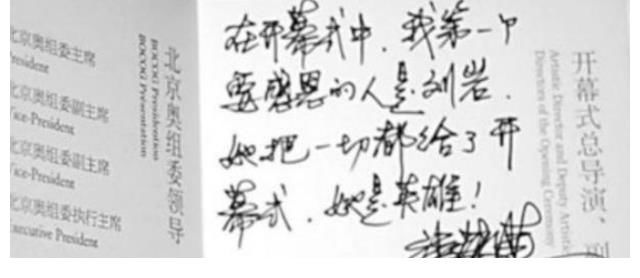 北京奥组委主席
President
北京奥组委副主席
Vice-President
北京奥组委副主席
Vice-President
北京奥组委执行主席
Executive President
北京奥组委领导
BOCOG Presidention
BOCOG Présentation
在开幕式中，我第一个
要感恩的人是刘岩．
她把一切都给了开
幕式．她是英雄！
开幕式总导演、副
Artistic Director and Deputy Artistic
Directors of the Opening Ceremony